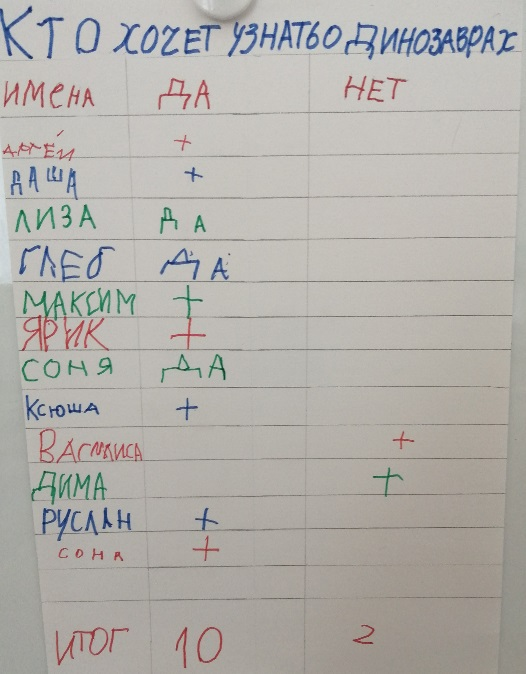 КТО ХОЧЕТ УЗНАТЬ О ДИНОЗАВРАХ
ИМЕНА ДА НЕТ
+
ДАША +
ЛИЗА ДА
ГЛЕБ ДА
МАКСИМ +
ЯРИК +
СОНЯ ДА
КСЮША +
ВАСИЛИСА +
ДИМА +
РУСЛАН +
СОНЯ +
ИТОГ 10 2